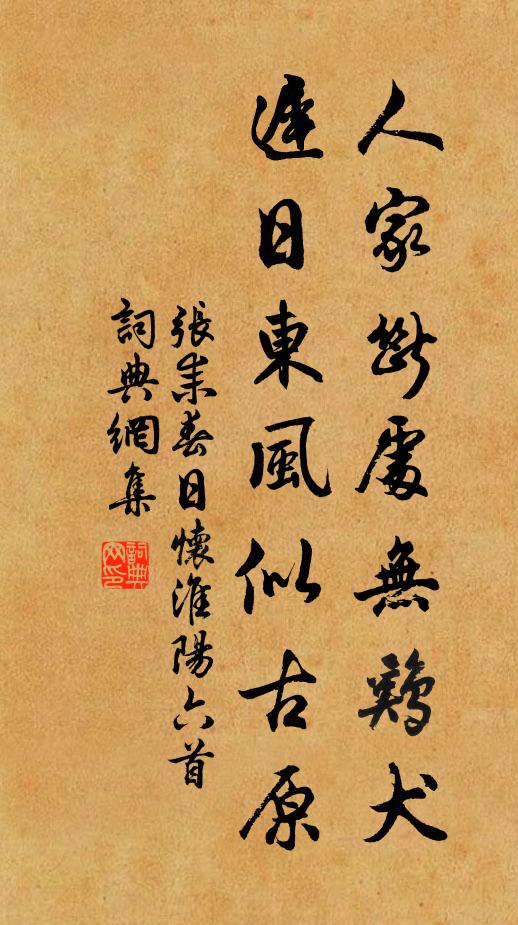 人家斷處無鷄犬
遲日東風似古原
張耒春日懷淮陽六首
詞典網集
詞典網印